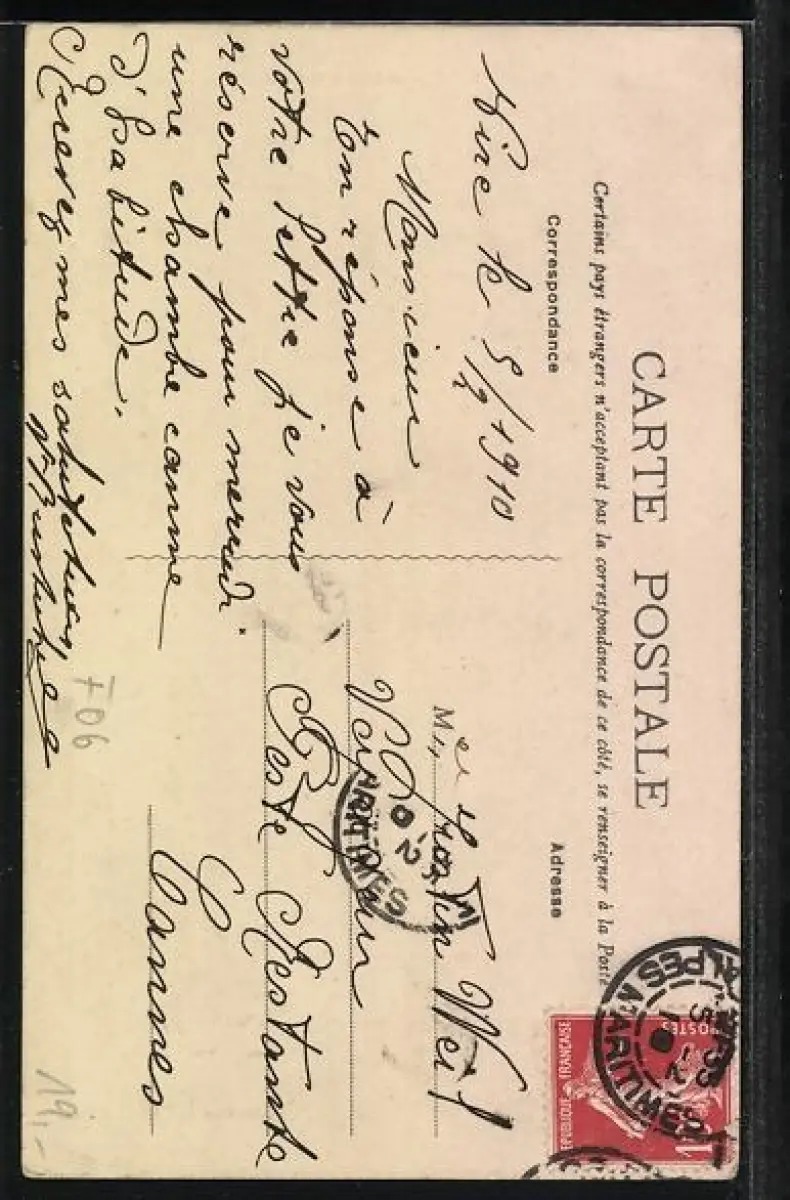 CARTE POSTALE
Certains pays étrangers n'acceptant pas la correspondance de ce côté, se renseigner à la Poste
Correspondance
Adresse
Nice le 5/2 1910
Monsieur
En réponse à
votre lettre je vous
réserve pour mercredi
une chambre comme
d'habitude.
Recevez mes salutations
M. Martin Weil
Voyageur
Poste Restante
Cannes
F06
19,-
REPUBLIQUE FRANÇAISE
POSTES
ALPES MARITIMES
MARITIMES